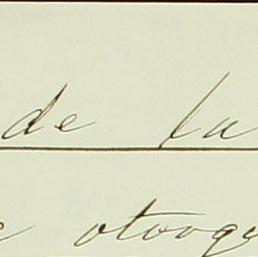 de la
e otorga